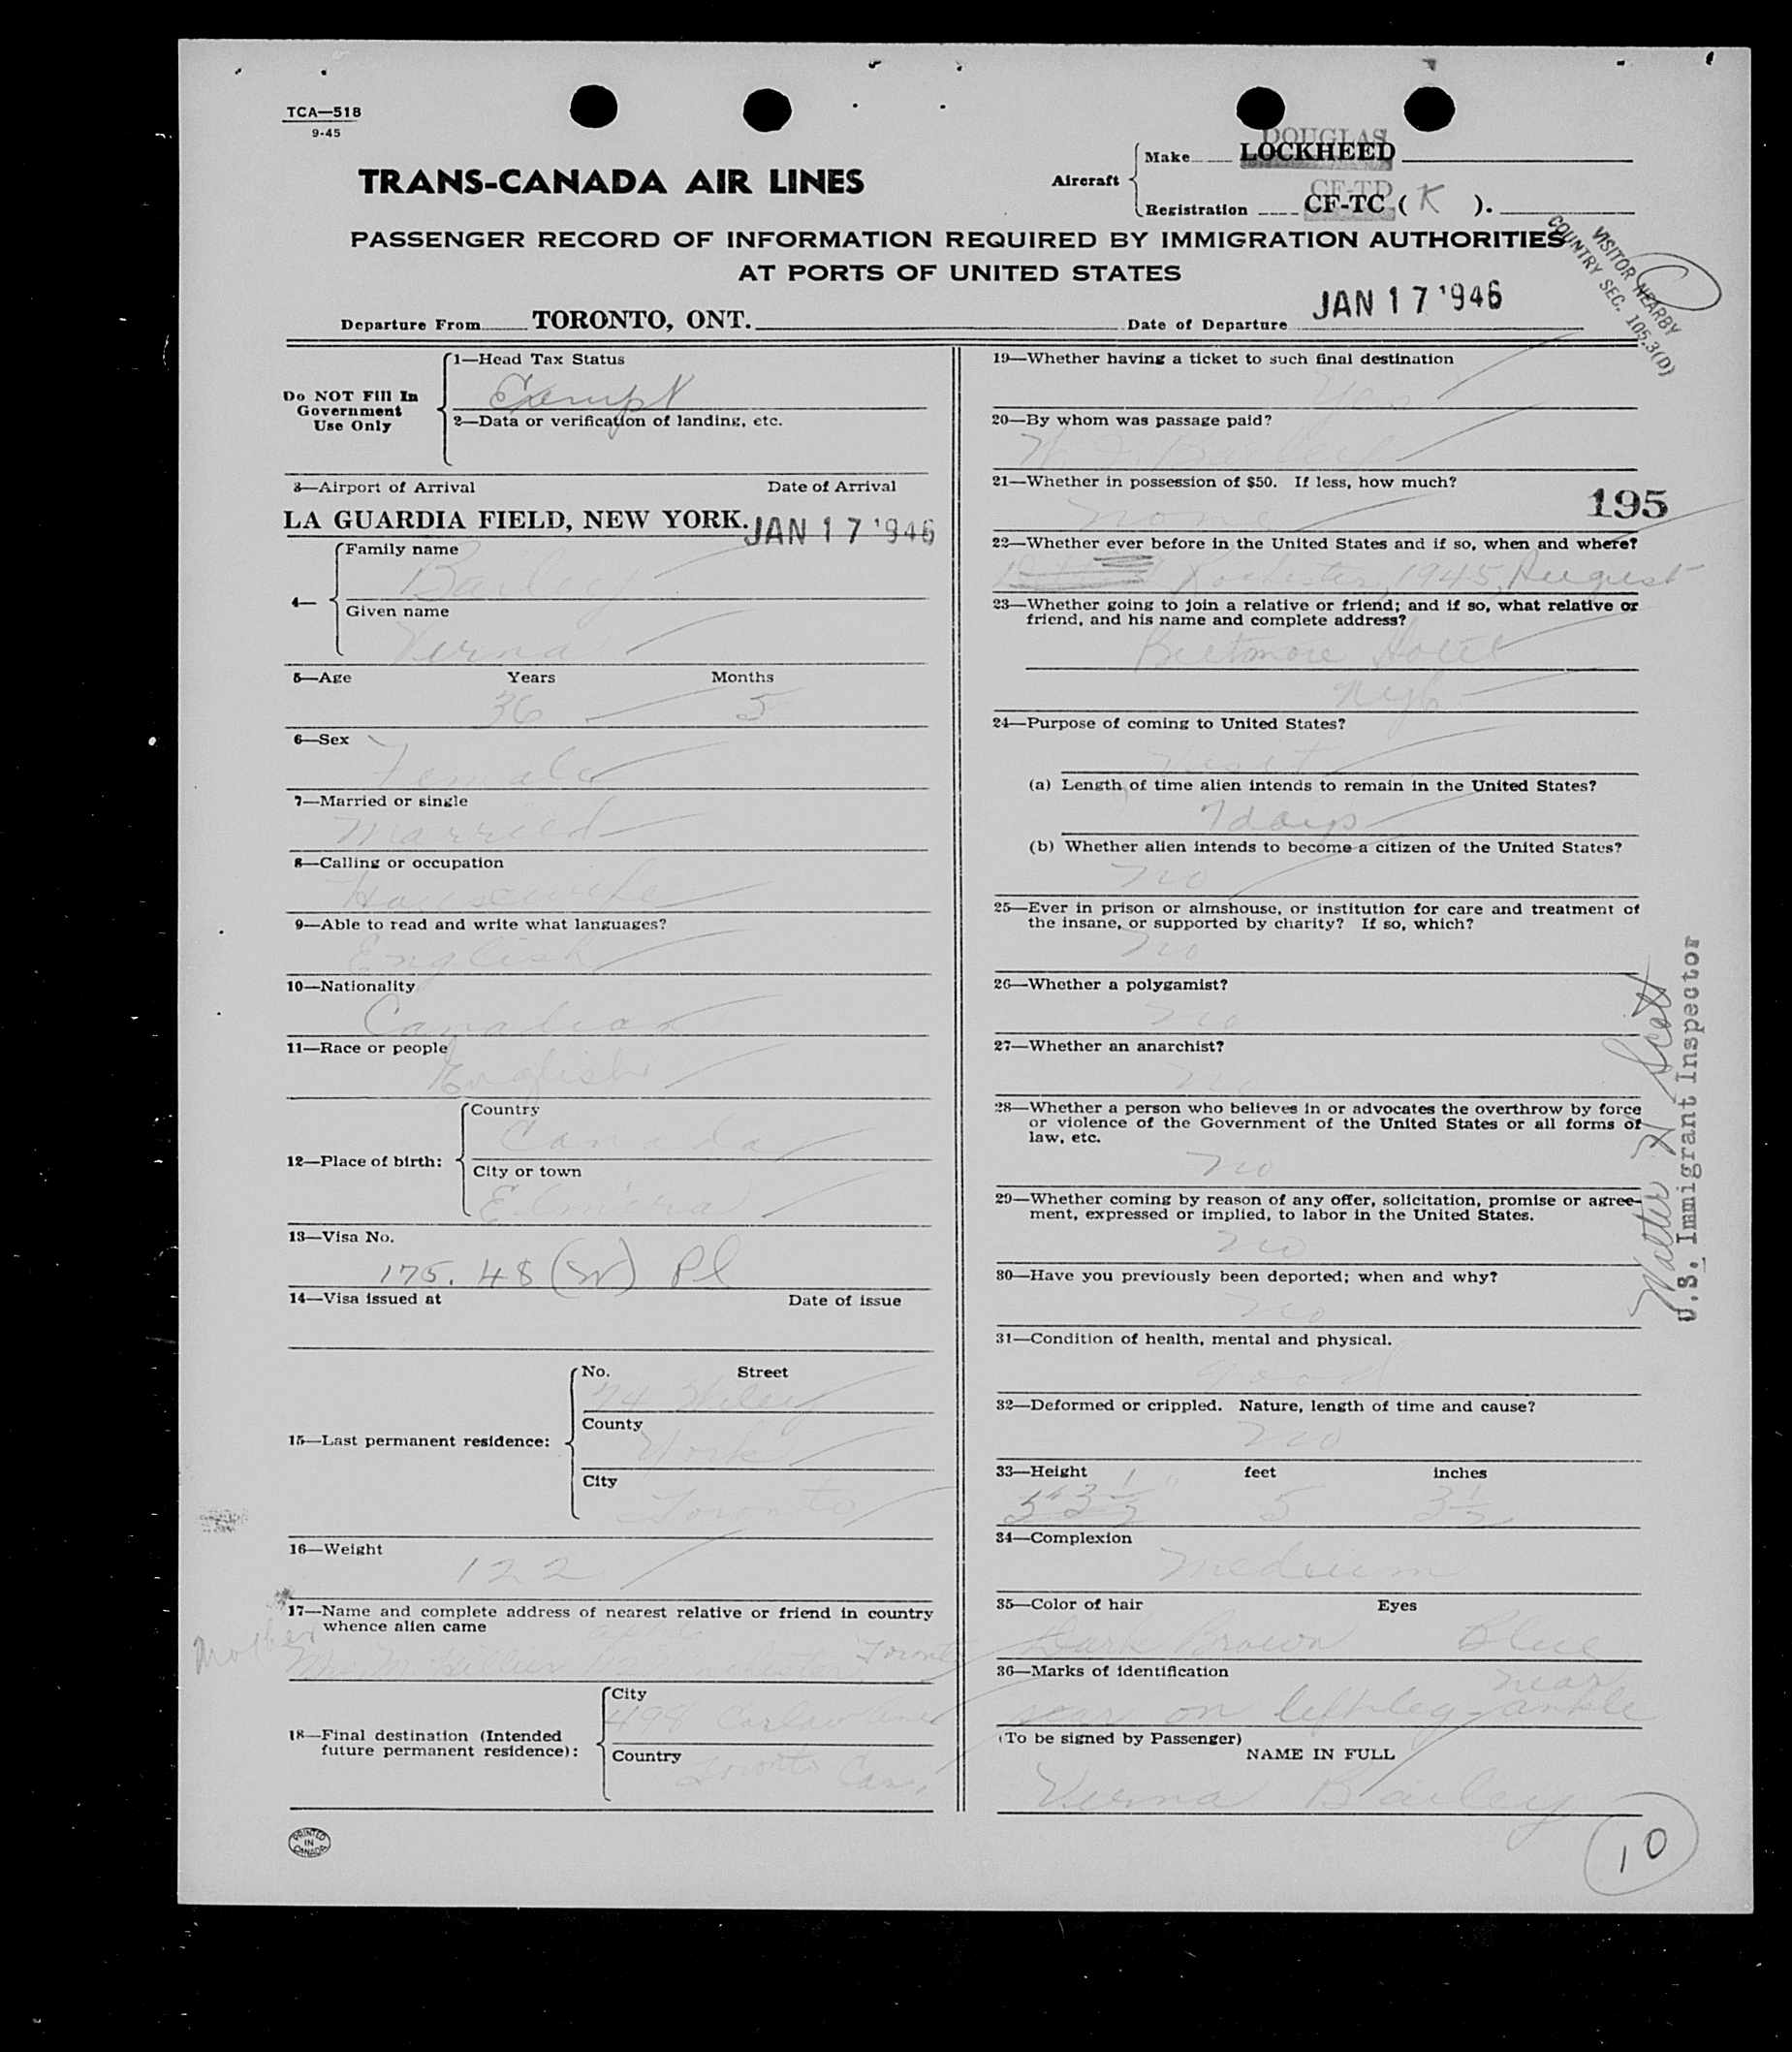 TCA—518
9-45
TRANS-CANADA AIR LINES
Aircraft
Make DOUGLAS LOCKHEED
Registration CF-TD CF-TC ( K ).
PASSENGER RECORD OF INFORMATION REQUIRED BY IMMIGRATION AUTHORITIES
AT PORTS OF UNITED STATES
VISITOR NEARBY
COUNTRY SEC. 105.3(D)
Departure From TORONTO, ONT. Date of Departure JAN 17 '946
Do NOT Fill In
Government
Use Only
1—Head Tax Status
Exempt
2—Data or verification of landing, etc.
3—Airport of Arrival Date of Arrival
LA GUARDIA FIELD, NEW YORK. JAN 17 '946
4—
Family name
Bailey
Given name
Verna
5—Age Years Months
36 5
6—Sex
Female
7—Married or single
Married
8—Calling or occupation
Housewife
9—Able to read and write what languages?
English
10—Nationality
Canadian
11—Race or people
English
12—Place of birth:
Country
Canada
City or town
Elmira
13—Visa No.
175. 48 (W) Pl
14—Visa issued at Date of issue
15—Last permanent residence:
No. Street
74 Wiley
County
York
City
Toronto
16—Weight
122
17—Name and complete address of nearest relative or friend in country
whence alien came
Mother
Toronto
18—Final destination (Intended
future permanent residence):
City
498 Carlaw Ave
Country
Toronto Can.
PRINTED
IN
CANADA
19—Whether having a ticket to such final destination
Yes
20—By whom was passage paid?
Bailey
21—Whether in possession of $50. If less, how much?
195
none
22—Whether ever before in the United States and if so, when and where?
Rochester, 1945, August
23—Whether going to join a relative or friend; and if so, what relative or
friend, and his name and complete address?
Biltmore Hotel
Nyc
24—Purpose of coming to United States?
Visit
(a) Length of time alien intends to remain in the United States?
7 days
(b) Whether alien intends to become a citizen of the United States?
no
25—Ever in prison or almshouse, or institution for care and treatment of
the insane, or supported by charity? If so, which?
no
26—Whether a polygamist?
no
27—Whether an anarchist?
no
28—Whether a person who believes in or advocates the overthrow by force
or violence of the Government of the United States or all forms of
law, etc.
no
29—Whether coming by reason of any offer, solicitation, promise or agree-
ment, expressed or implied, to labor in the United States.
no
30—Have you previously been deported; when and why?
no
31—Condition of health, mental and physical.
good
32—Deformed or crippled. Nature, length of time and cause?
no
33—Height feet inches
5' 3 1/2 5 3 1/2
34—Complexion
Medium
35—Color of hair Eyes
Dark Brown Blue
36—Marks of identification
near
scar on left leg ankle
(To be signed by Passenger)
NAME IN FULL
Verna Bailey
10
Walter H Scott
U.S. Immigrant Inspector